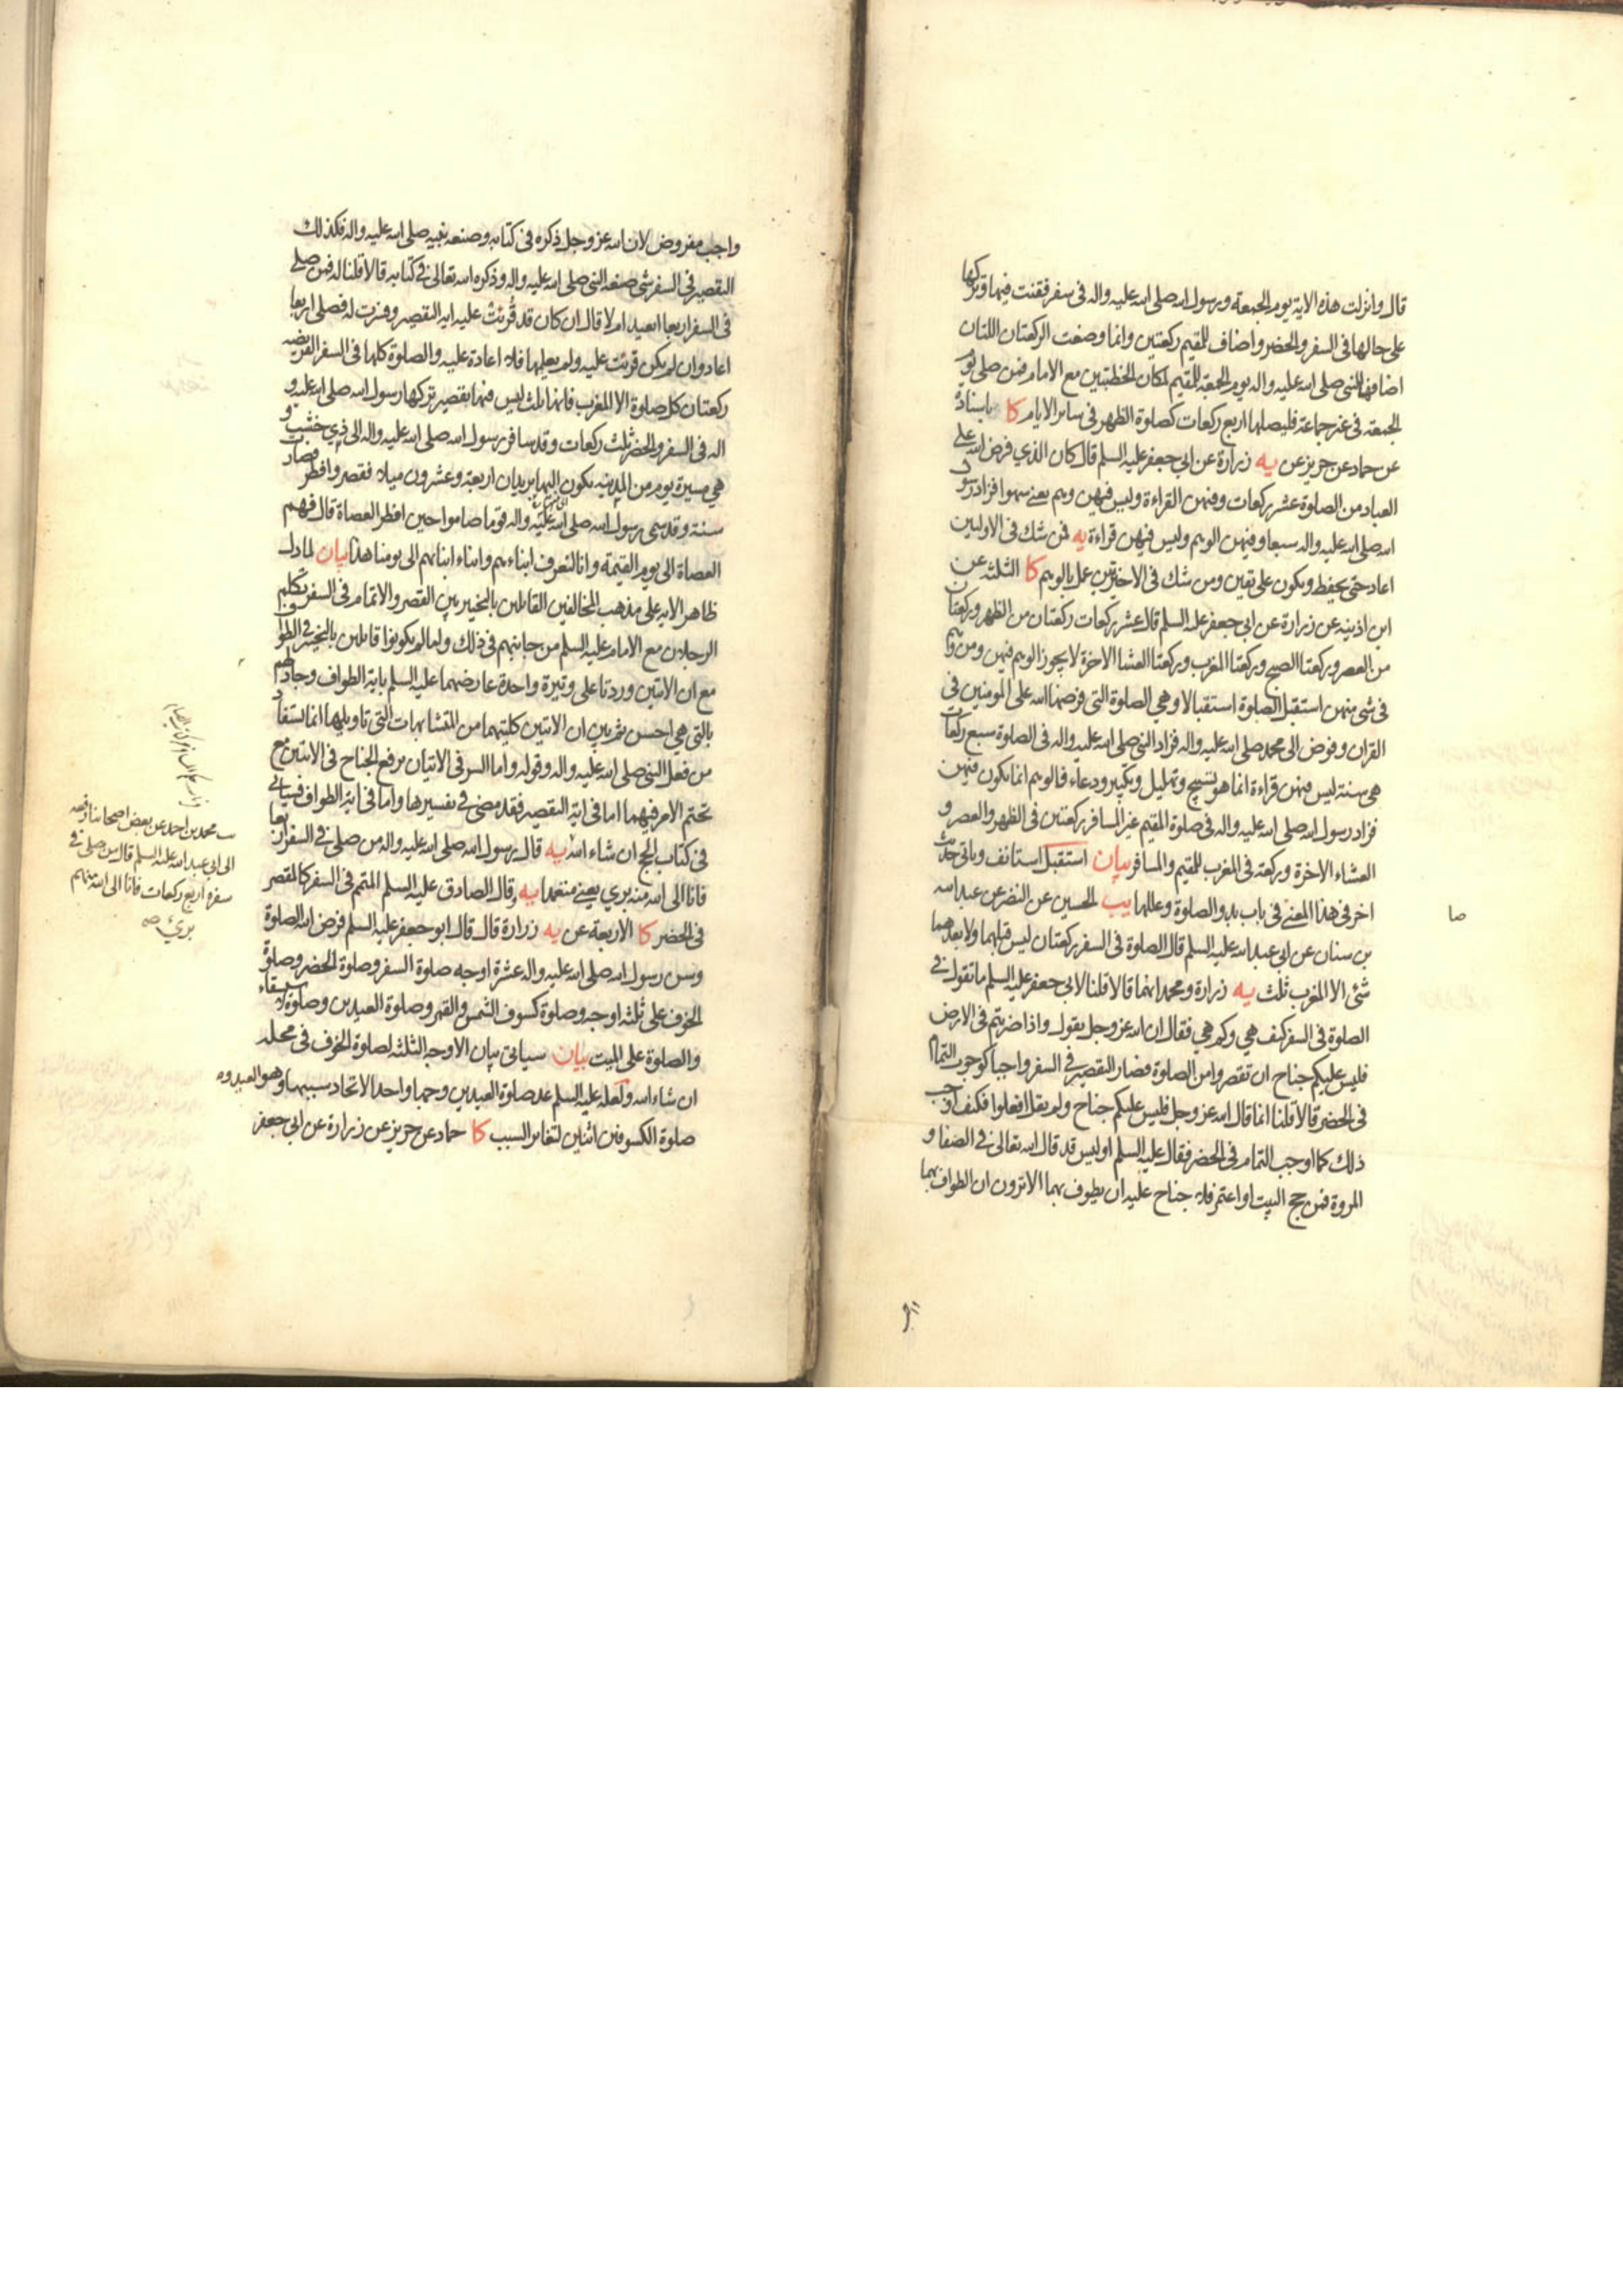 قال وانزلت هذه الاية يوم الجمعة ورسول الله صلى الله عليه واله فى سفر فقنت فيها وتركها
على حالها فى السفر والحضر واضاف للمقيم ركعتين وانما وضعت الركعتان اللتان
اضافهما النبى صلى الله عليه واله يوم الجمعة للمقيم لمكان الخطبتين مع الامام فمن صلى يوم
الجمعة فى غير جماعة فليصلها اربع ركعات كصلوة الظهر فى ساير الايام كا باسناده
عن حماد عن حريز عن يه زرارة عن ابي جعفر عليه السلم قال كان الذي فرض الله على
العباد من الصلوة عشر ركعات وفيهن القراءة وليس فيهن وهم يعنى سهوا فزاد رسول
الله صلى الله عليه واله سبعا وفيهن الوهم وليس فيهن قراءة يه فمن شك فى الاوليين
اعاد حتى يحفظ ويكون على يقين ومن شك فى الاخيرتين عمل بالوهم كا الثلثة عن
ابن اذينه عن زرارة عن ابي جعفر عليه السلم قال عشر ركعات ركعتان من الظهر وركعتان
من العصر وركعتا الصبح وركعتا المغرب وركعتا العشا الاخرة لا يجوز الوهم فيهن ومن وهم
فى شى منهن استقبل الصلوة استقبالا وهي الصلوة التى فرضها الله على المومنين فى
القران وفوض الى محمد صلى الله عليه واله فزاد النبى صلى الله عليه واله فى الصلوة سبع ركعات
هى سنة ليس فيهن قراءة انما هو تسبيح وتهليل وتكبير ودعاء فالوهم انما يكون فيهن
فزاد رسول الله صلى الله عليه واله فى صلوة المقيم غير المسافر ركعتين فى الظهر والعصر و
العشاء الاخرة وركعة فى المغرب للمقيم والمسافر بيان استقبل استانف وياتى حديث
اخر فى هذا المعنى فى باب بدو الصلوة وعللها يب الحسين عن النضر عن عبد الله
بن سنان عن ابي عبد الله عليه السلم قال الصلوة فى السفر ركعتان ليس قبلهما ولا بعدهما
شئ الا المغرب ثلث يه زرارة ومحمد انهما قالا قلنا لابي جعفر عليه السلم ما تقول فى
الصلوة فى السفر كيف هي وكم هي فقال ان الله عز وجل يقول واذا ضربتم فى الارض
فليس عليكم جناح ان تقصروا من الصلوة فصار التقصير فى السفر واجبا كوجوب التمام
فى الحضر قالا قلنا انما قال الله عز وجل فليس عليكم جناح ولم يقل افعلوا فكيف اوجب
ذلك كما اوجب التمام فى الحضر فقال عليه السلم اوليس قد قال الله تعالى فى الصفا و
المروة فمن حج البيت او اعتمر فلا جناح عليه ان يطوف بهما الا ترون ان الطواف بهما
صا
واجب مفروض لان الله عز وجل ذكره فى كتابه وصنعه نبيه صلى الله عليه واله فكذلك
التقصير فى السفر شى صنعه النبى صلى الله عليه واله وذكره الله تعالى فى كتابه قالا قلنا له فمن صلى
فى السفر اربعا ايعيد ام لا قال ان كان قد قُرِئَت عليه اية التقصير وفسرت له فصلى اربعا
اعاد وان لم يكن قرئت عليه ولم يعلمها فلا اعادة عليه والصلوة كلها فى السفر الفريضه
ركعتان كل صلوة الا المغرب فانها ثلث ليس فيها تقصير تركها رسول الله صلى الله عليه و
اله فى السفر والحضر ثلث ركعات وقد سافر رسول الله صلى الله عليه واله الى ذي خشب و
هي مسيرة يوم من المدينه يكون اليها بريدان اربعة وعشرون ميلا فقصر وافطر فصارت
سنة وقد سمى رسول الله صلى الله عليه واله قوما صاموا حين افطر العصاة قال فهم
العصاة الى يوم القيمة وانا لنعرف ابناءهم وابناء ابنائهم الى يومنا هذا بيان لما دل
ظاهر الاية على مذهب المخالفين القائلين بالتخيير بين القصر والاتمام فى السفر تكلم
الرجلان مع الامام عليه السلم من جانبهم فى ذلك ولما لم يكونوا قائلين بالتخيير فى الطواف
مع ان الايتين وردتا على وتيرة واحدة عارضهما عليه السلم باية الطواف وجادلهم
بالتى هي احسن ثم بين ان الايتين كلتيهما من المتشابهات التى تاويلها انما يستفاد
من فعل النبى صلى الله عليه واله وقوله واما السر فى الاتيان برفع الجناح فى الايتين مع
تحتم الامر فيهما اما فى اية التقصير فقد مضى فى تفسيرها واما فى اية الطواف فسياتى
فى كتاب الحج ان شاء الله يه قال رسول الله صلى الله عليه واله من صلى فى السفر اربعا
فانا الى الله منه بري يعنى متعمدا يه وقال الصادق عليه السلم المتمم فى السفر كالمقصر
فى الحضر كا الاربعة عن يه زرارة قال قال ابو جعفر عليه السلم فرض الله الصلوة
وسن رسول الله صلى الله عليه واله عشرة اوجه صلوة السفر وصلوة الحضر وصلوة
الخوف على ثلثة اوجه وصلوة كسوف الشمس والقمر وصلوة العيدين وصلوة الاستسقاء
والصلوة على الميت بيان سياتى بيان الاوجه الثلثة لصلوة الخوف فى محله
ان شاء الله ولعله عليه السلم عد صلوة العيدين وجها واحدا لاتحاد سببهما وهو العيد وعد
صلوة الكسوفين اثنين لتغاير السبب كا حماد عن حريز عن زرارة عن ابي جعفر
يب محمد بن احمد عن بعض اصحابنا رفعه
الى ابي عبد الله عليه السلم قال من صلى فى
سفره اربع ركعات فانا الى الله منهم
بريء صه